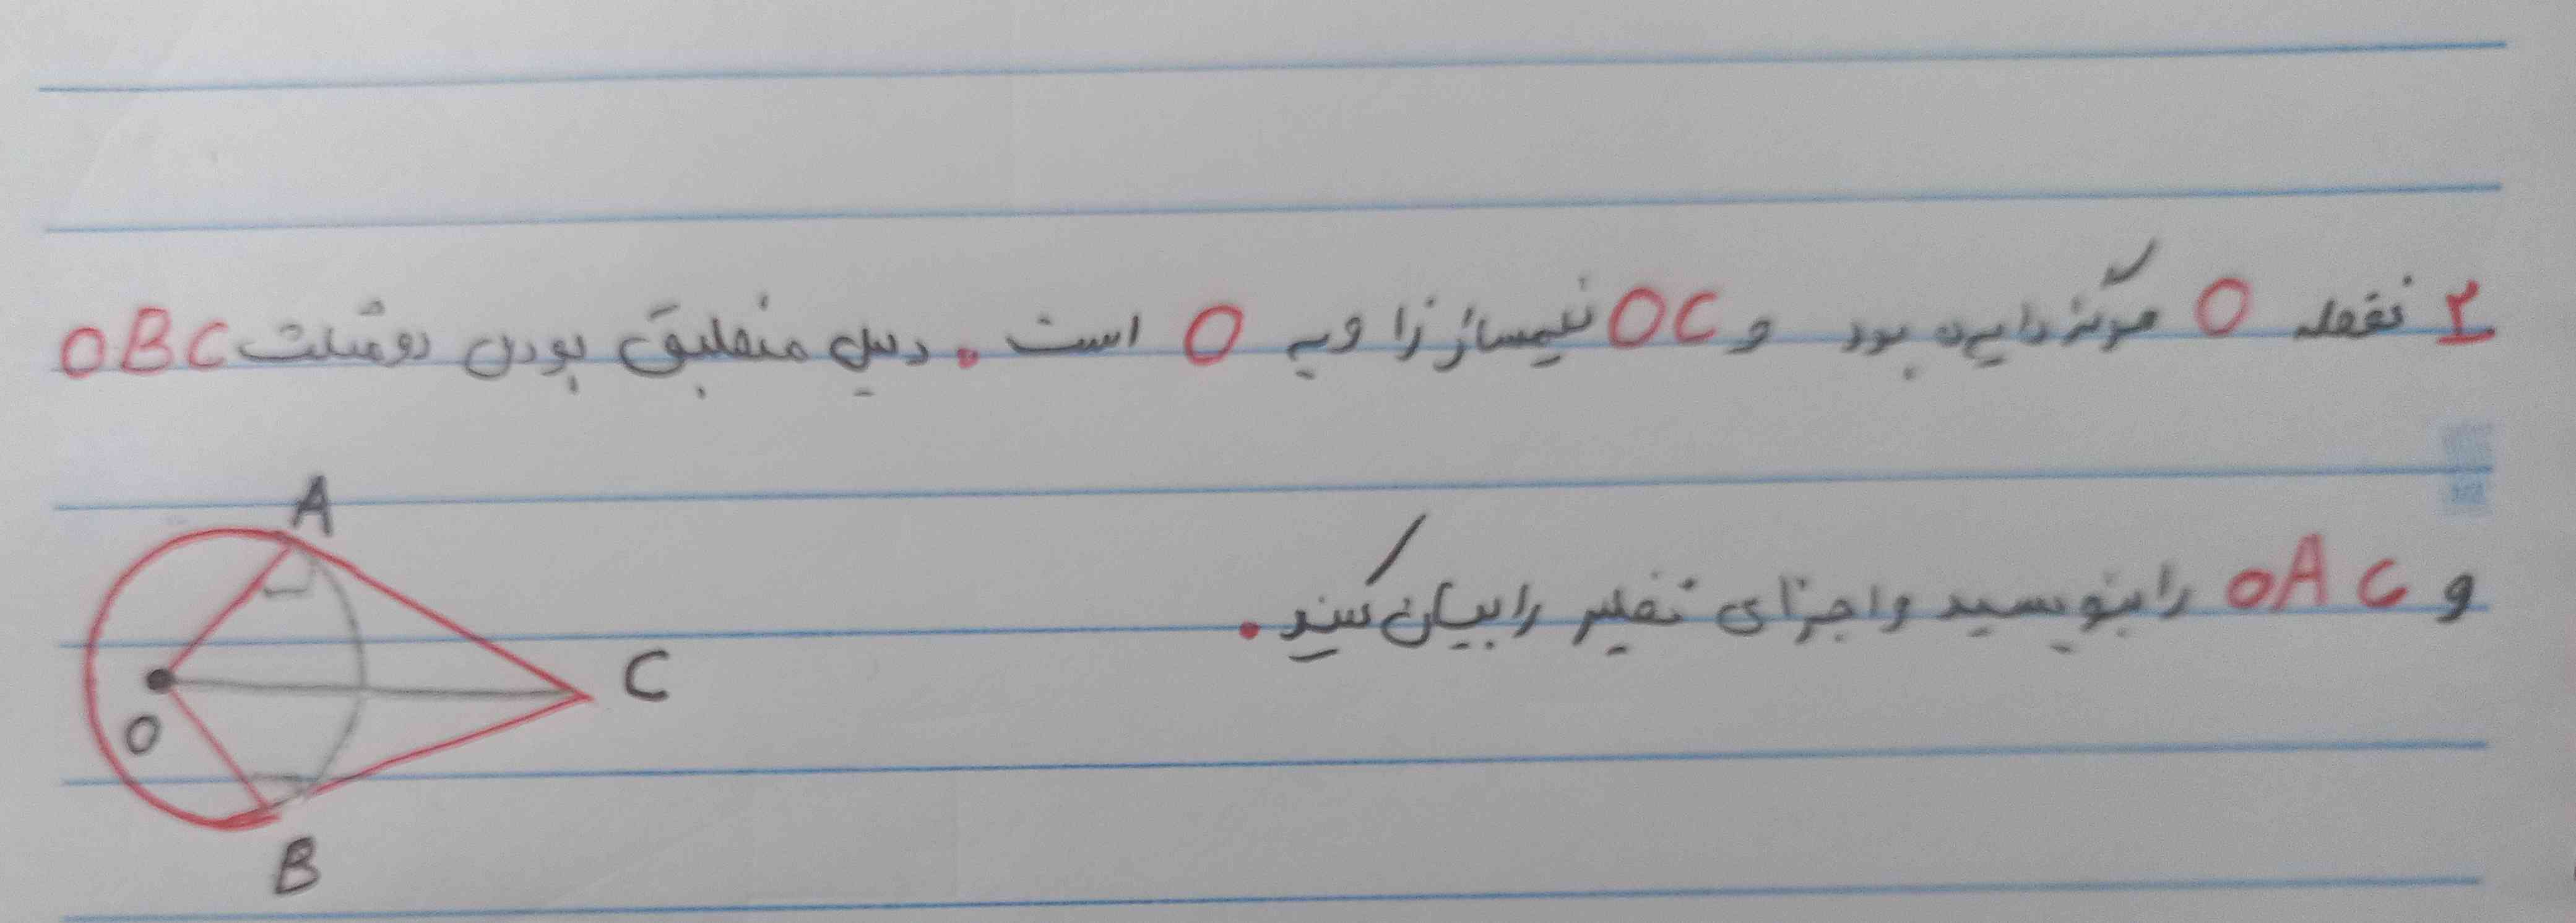 ۲ نقطه O مرکز دایره بود و OC نیمساز زاویه O است. دلیل منطبق بودن دو مثلث OBC
و OAC را بنویسید و اجزای نظیر را بیان کنید.
A
C
O
B